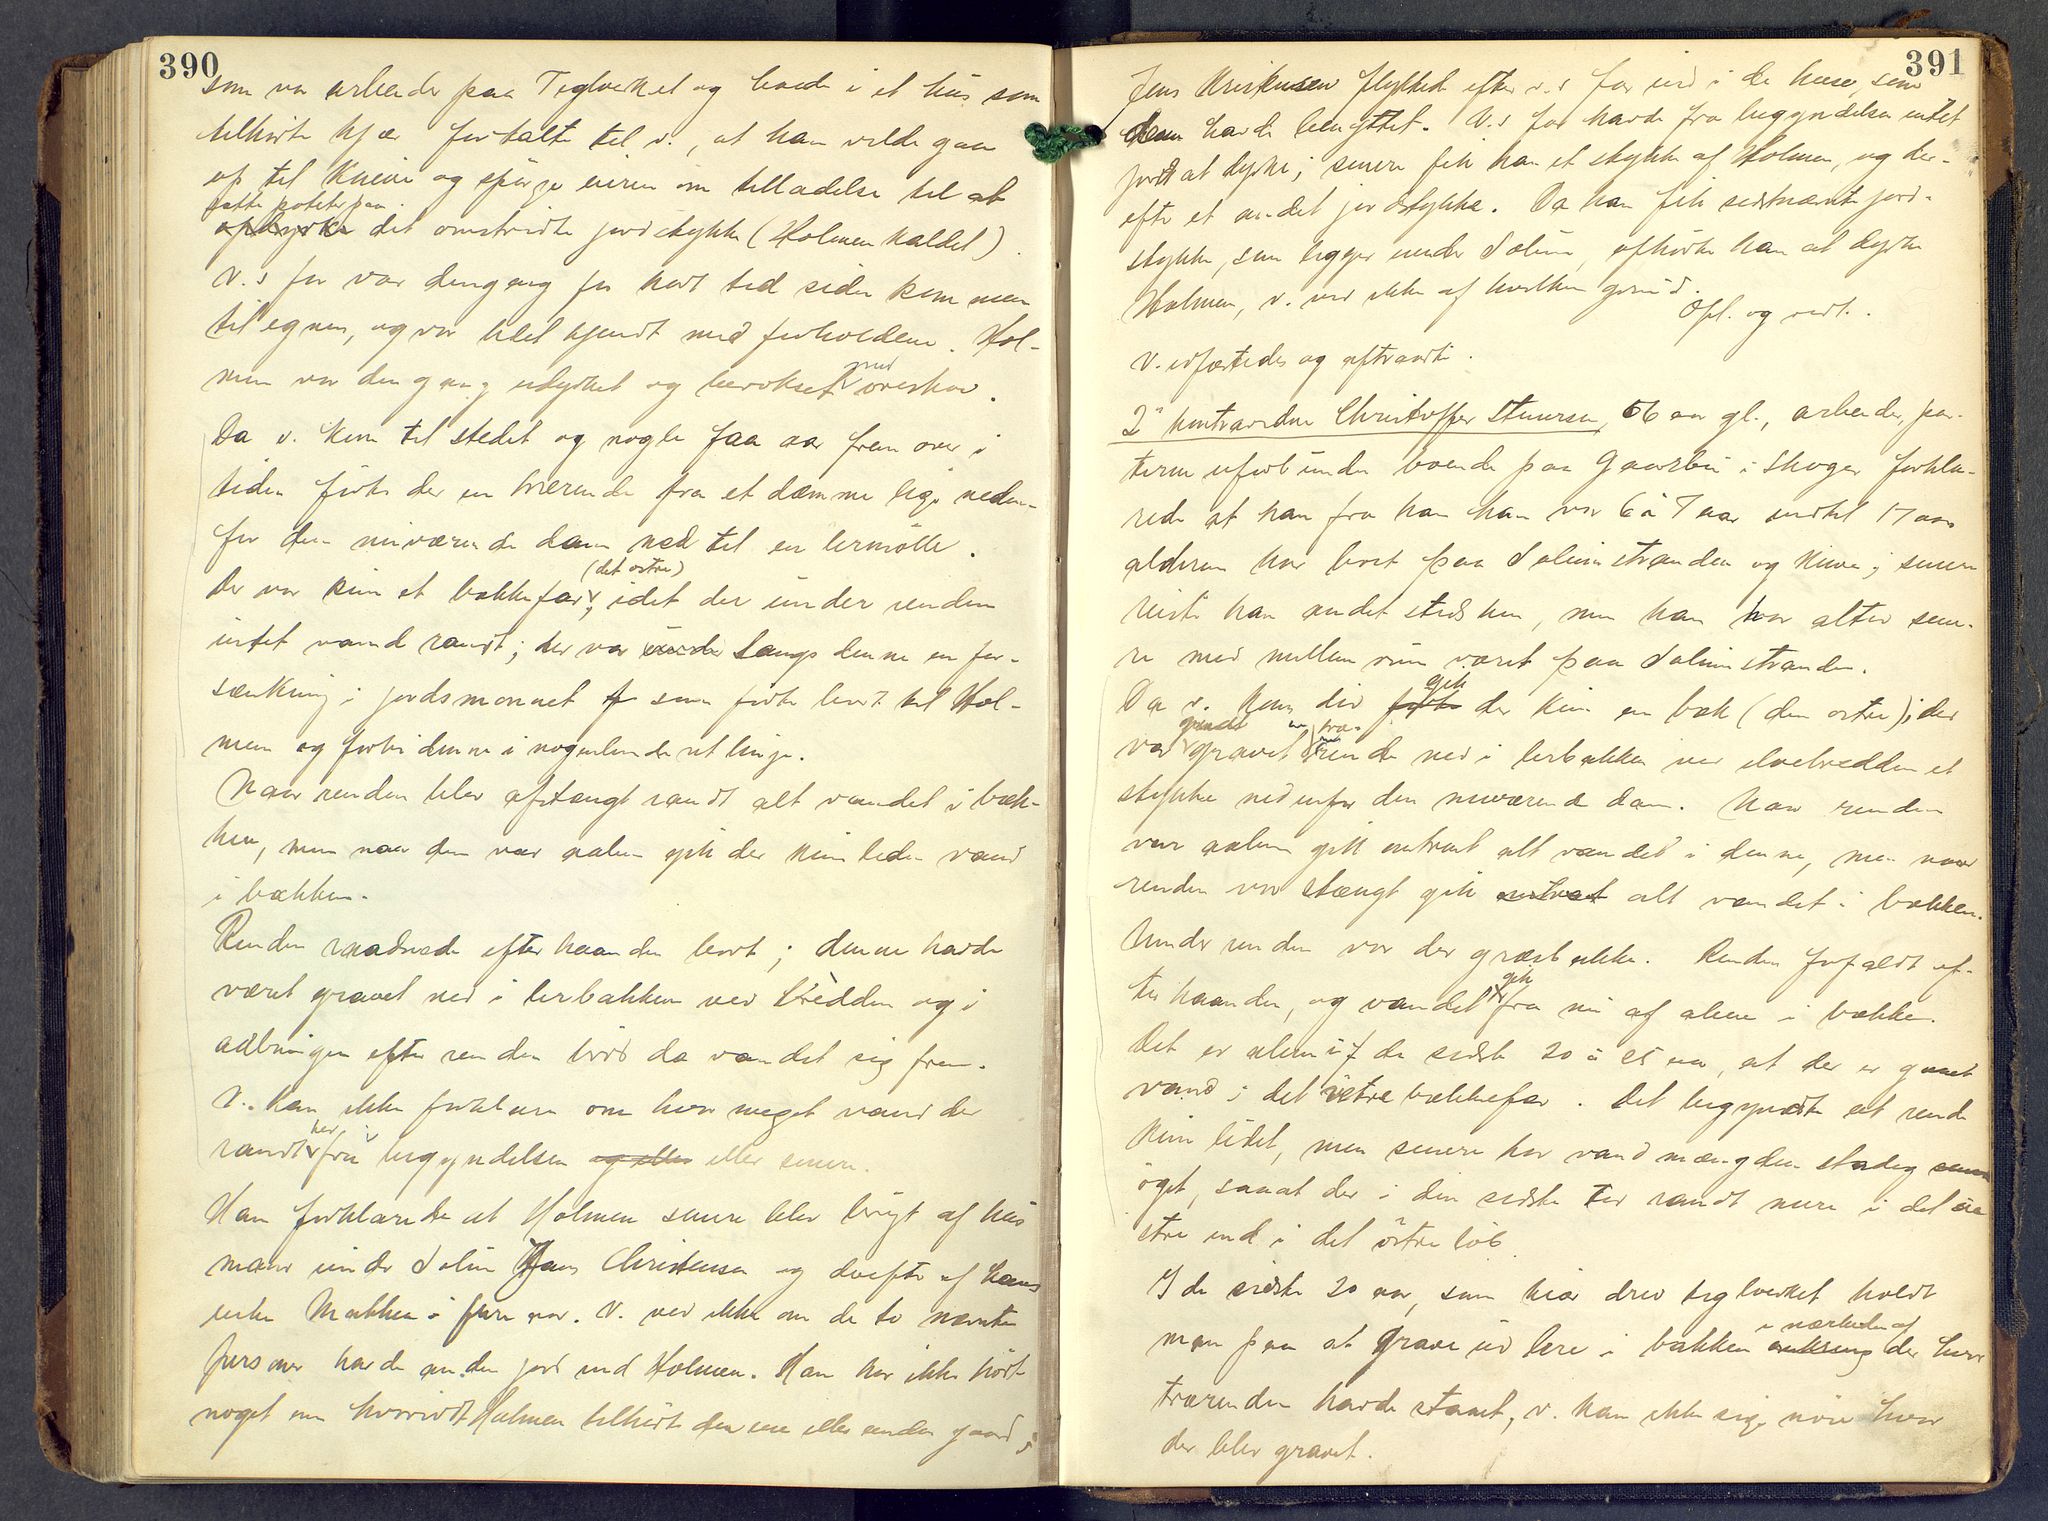 390
som var arbeider paa Teglverket og boede i et hus som
tilhørte Kjær fortalte til v., at han vilde gaa
op til Kneiv og spørge eieren om tilladelse til at
sætte poteter paa
opdyrke det omstridte jordstykke (Holmen kaldet).
V.s far var dengang for kort tid siden kommen
til egnen, og var lidet kjendt med forholdene. Hol-
men var dengang udyrket og bevokset med oreskov.
Da v. kom til stedet og nogle faa aar frem over i
tiden førte der en trærende fra et dæmme lige neden-
for den nuværende dam ned til en lermølle.
Der var kun et bækkefar (det østre), idet der under renden
intet vand randt; der var under langs denne en for-
sænkning i jordsmonnet som førte bort til Hol-
men og forbi denne i nogenlunde ret linje.
Naar renden blev afstængt randt alt vandet i bæk-
ken, men naar den var aaben gik der kun lidet vand
i bækken.
Renden raadnede efterhaanden bort; denne havde
været gravet ned i lerbakken ved bredden og i
aabningen efter renden brød da vandet sig frem.
V. kan ikke forklare om hvor meget vand der
randt her fra begyndelsen og eller eller senere.
Han forklarede at Holmen senere blev brugt af hus
mand under Solum Jens Christensen og derefter af hans
enke Mathea i flere aar. V. ved ikke om de to nævnte
personer havde anden jord end Holmen. Han har ikke hørt
noget om hvorvidt Holmen tilhørte den ene eller anden gaard;
391
Jens Kristensen flyttede efter v.s far ind i de huse, som
denne havde benyttet. V.s far havde fra begyndelsen intet
jord at dyrke; senere fik han et stykke af Holmen, og der-
efter et andet jordstykke. Da han fik sidstnævnte jord-
stykke, som ligger under Solum, ophørte han at dyrke
Holmen, v. ved ikke af hvilken grund.
Opl. og vedt.
V. edfæstedes og aftraadte.
2det kontravidne Christoffer Stuersen, 56 aar gl., arbeider, par-
terne uforbunden boende paa Gaasbu i Skoger forkla-
rede at han fra han var 6 à 7 aar indtil 17 aars
alderen har boet paa Solumstranden og Kneiv; senere
reiste han andet steds hen, men han har altid sene-
re med mellemrum været paa Solumstranden.
Da v. kom did førte gik der kun en bæk (den østre); der
var gravet en træ-
rende ned i lerbakken ved elvebredden et
stykke nedenfor den nuværende dam. Naar renden
var aaben gik omtrent alt vandet i denne, men naar
renden var stængt gik omtrent alt vandet i bækken.
Under renden var der græsbakke. Renden forfaldt ef-
terhaanden, og vandet gik fra nu af alene i bækken.
Det er alene i de sidste 20 à 25 aar, at der er gaaet
vand i det vestre bækkefar. Det begyndte at rende
kun lidet, men senere har vandmængden stadig
øget, saaat der i den sidste tid randt mere i det ve
stre end i det østre løb.
I de sidste 20 aar, som Kiær drev teglverket holdt
man paa at grave ud lere i bakken omkring i nærheden af der hvor
trærenden havde staaet, v. kan ikke sige nøie hvor
der blev gravet.